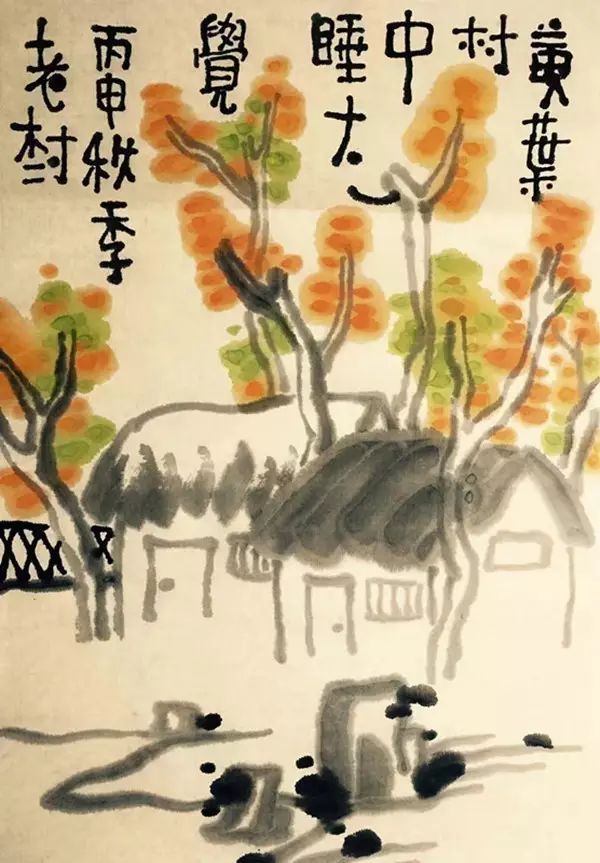 黄葉
村
中
睡大
覺
丙申秋季
老村